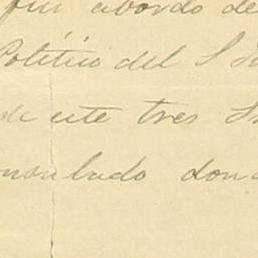 fui abordo de
Politico del S
de este tres
onsulado don